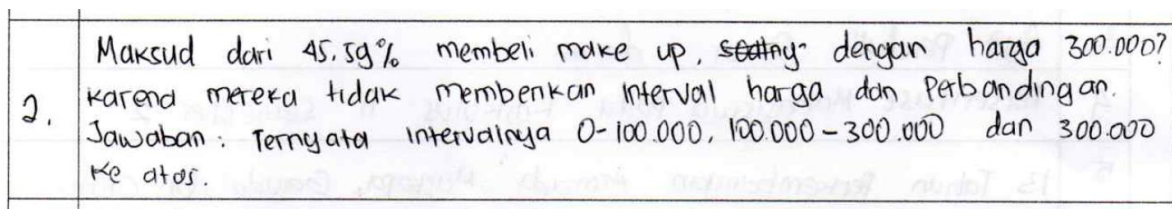 Maksud dari 45.59% membeli make up, dengan harga 300.000?
2. karena mereka tidak memberikan interval harga dan Perbandingan.
Jawaban : Ternyata intervalnya 0-100.000, 100.000-300.000 dan 300.000
ke atas.